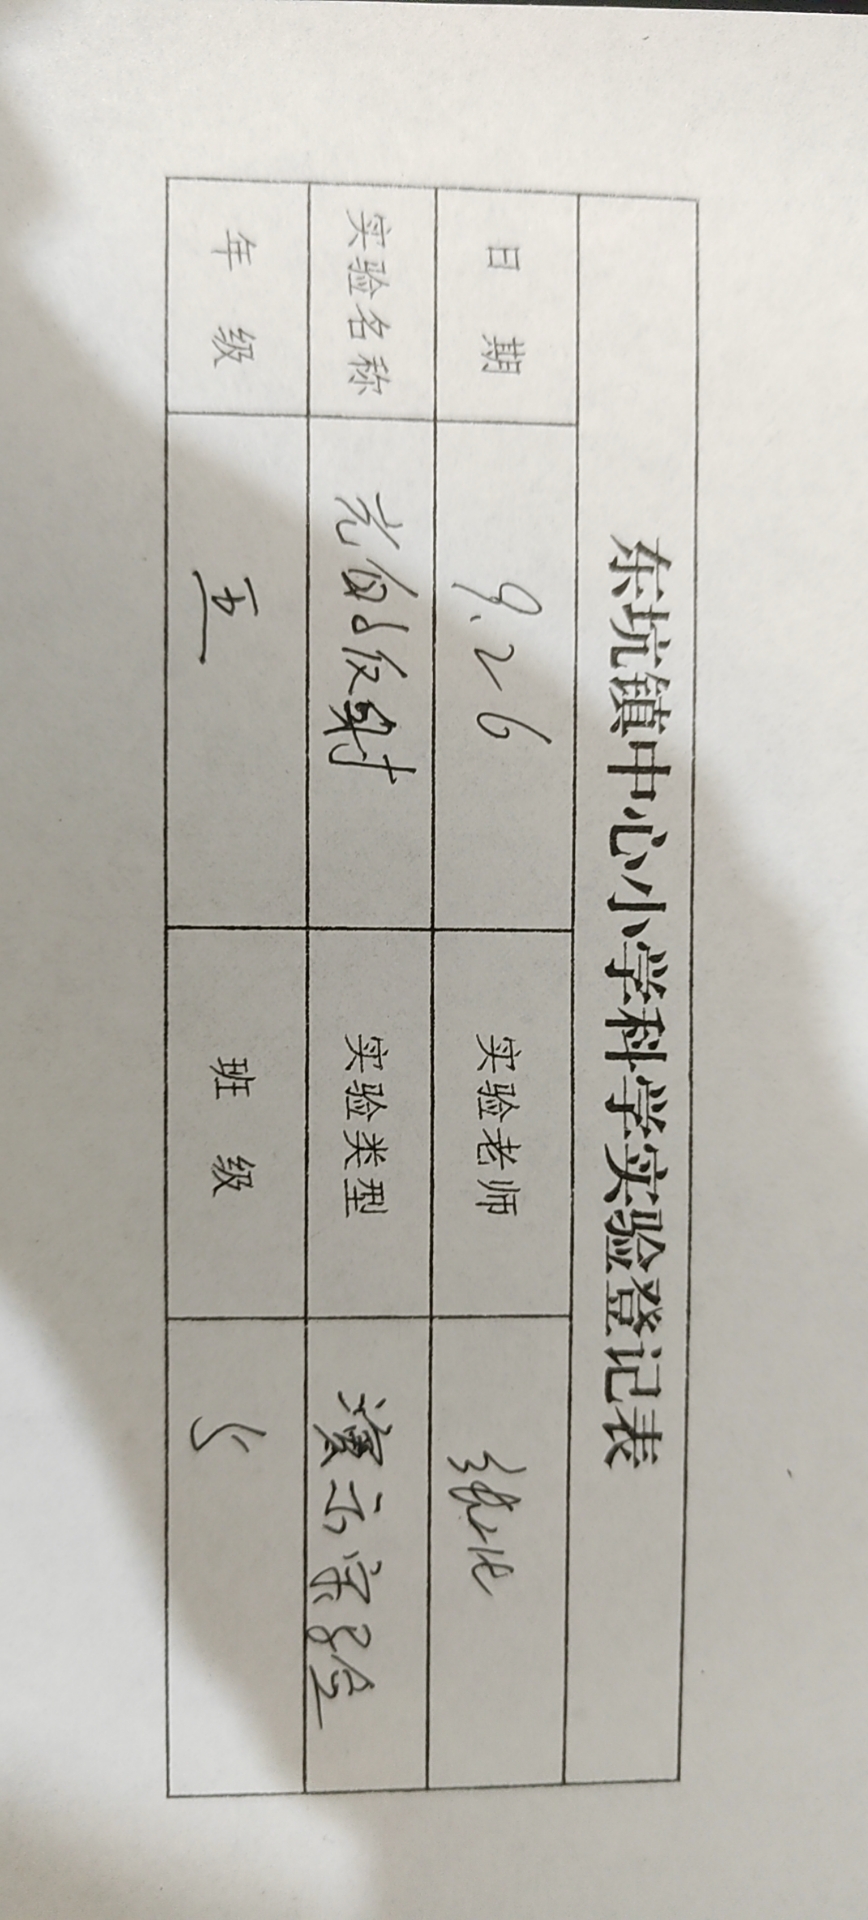 东坑镇中心小学科学实验登记表
日 期 9.26 实验老师
实验名称 光的反射 实验类型 演示实验
年 级 五 班 级 5